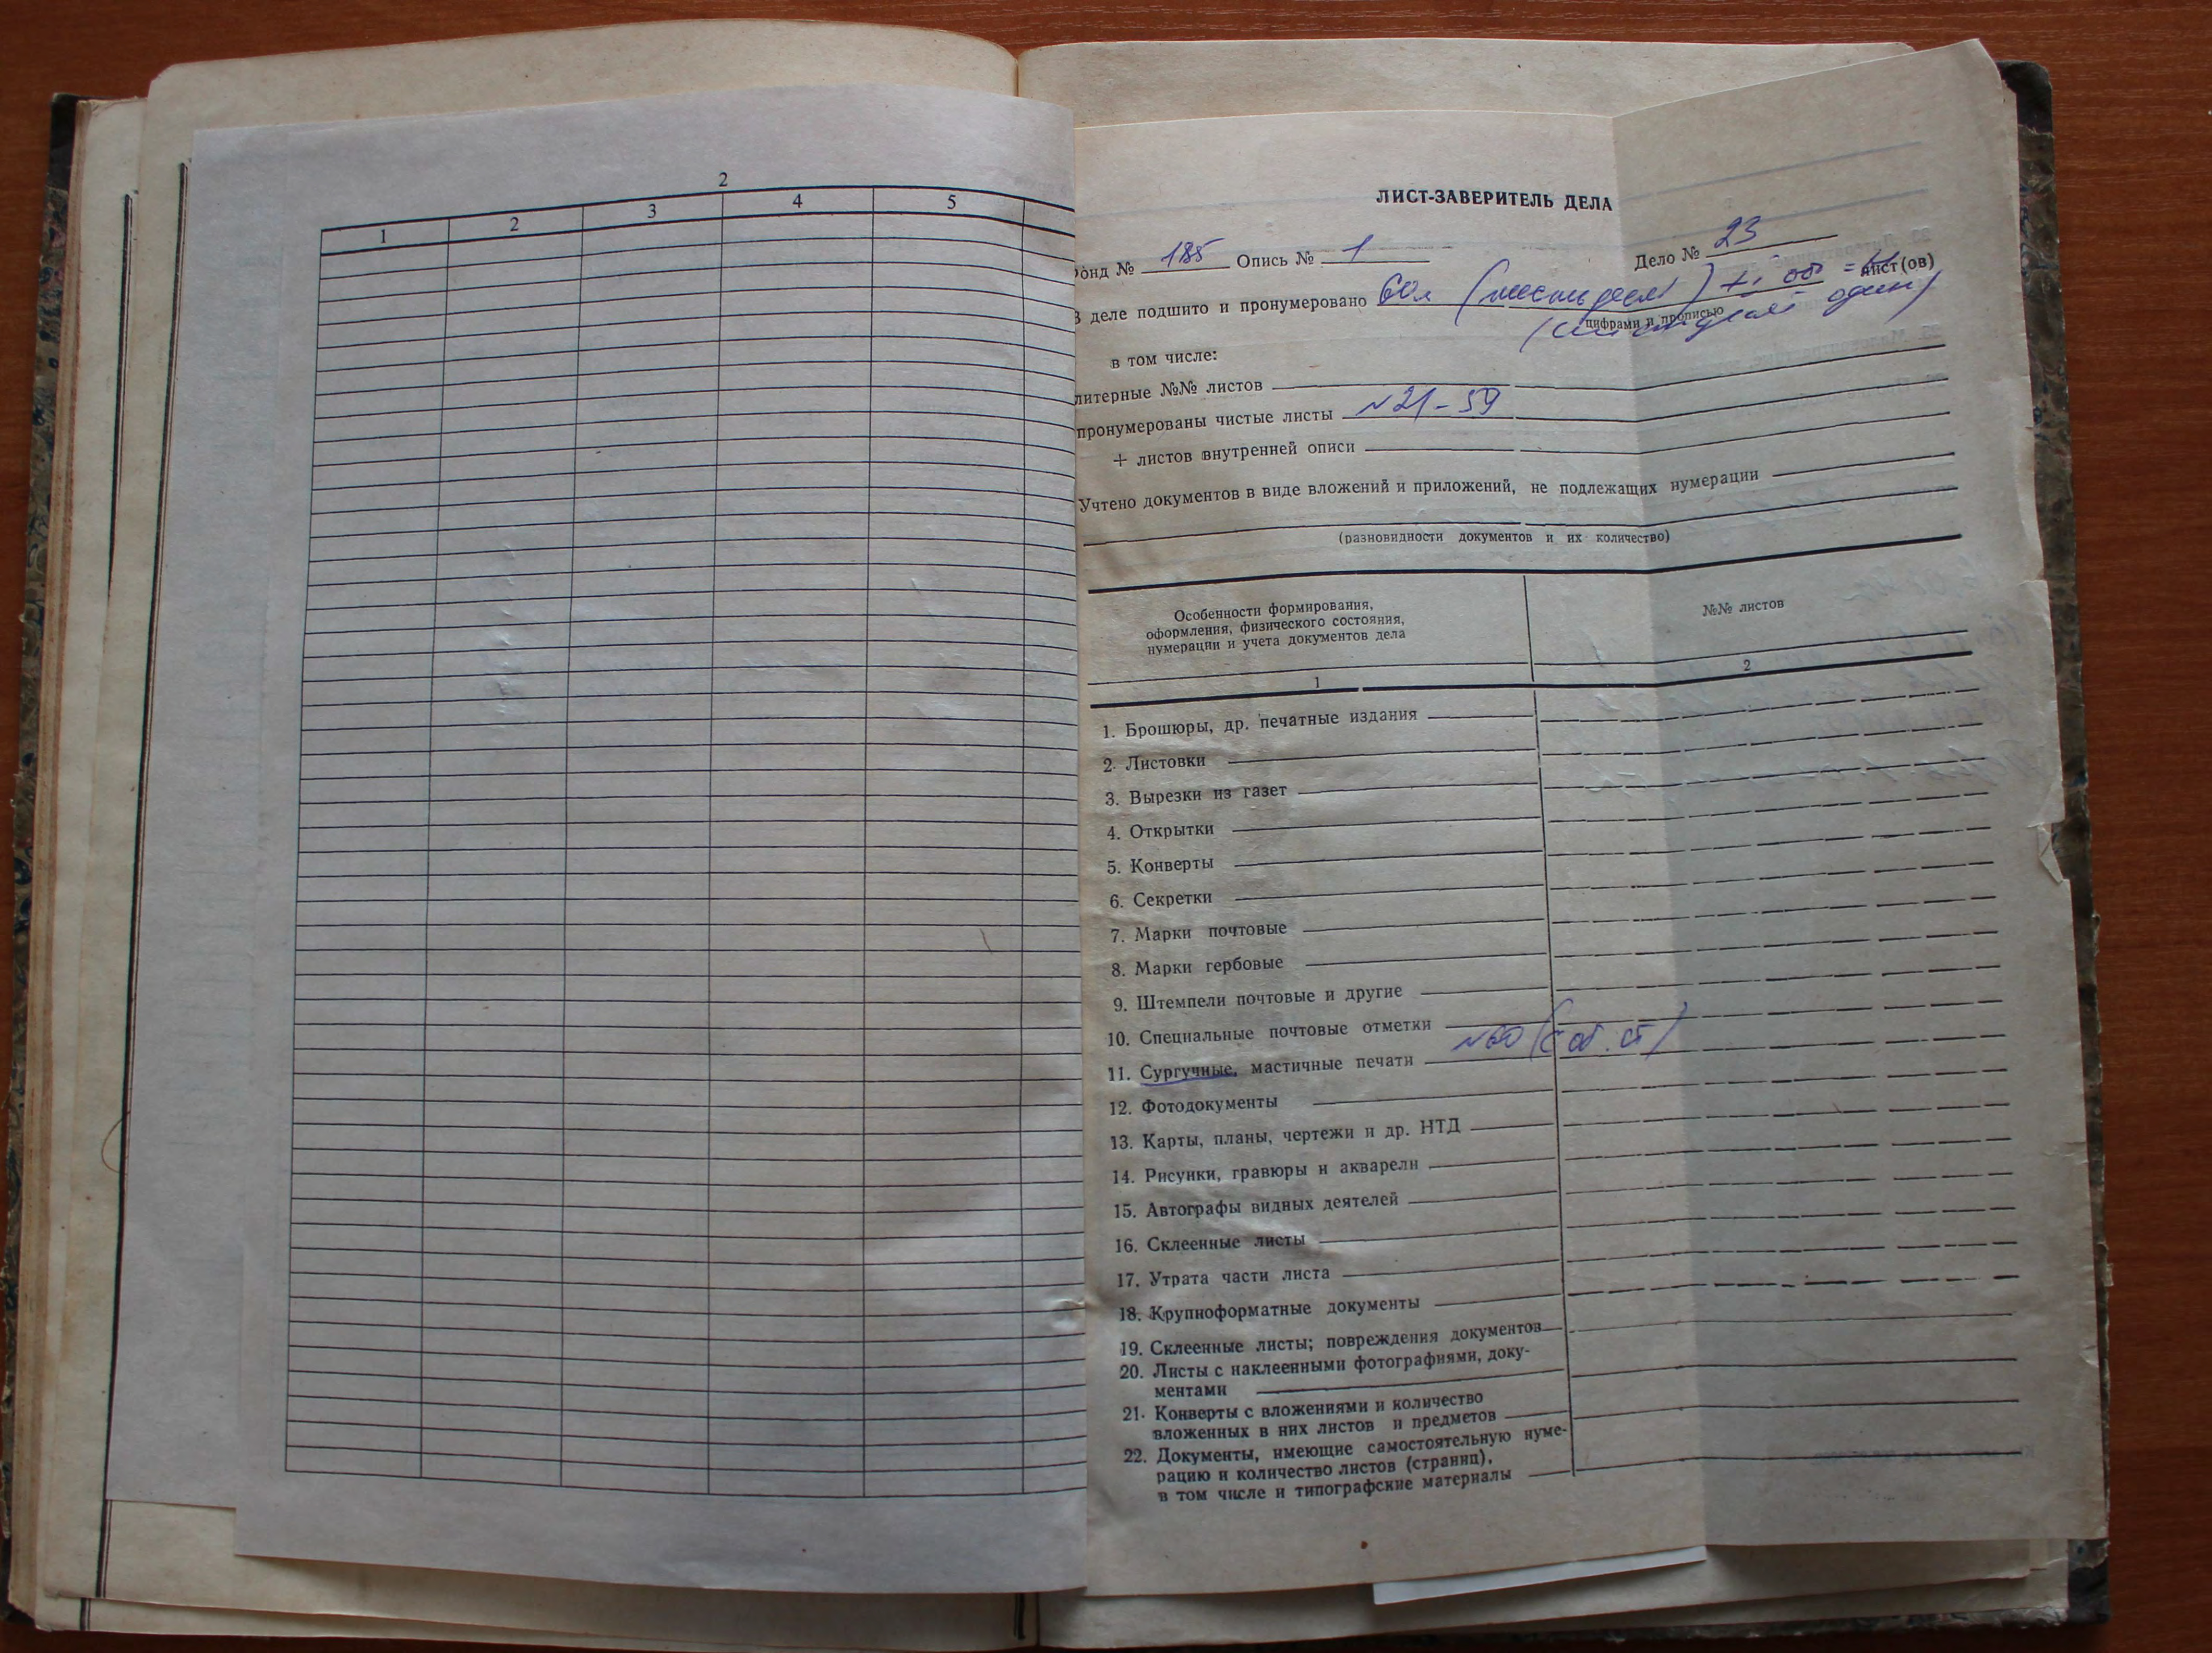 2
1 2 3 4 5
ЛИСТ-ЗАВЕРИТЕЛЬ ДЕЛА
Фонд № 185 Опись № 1 Дело № 23
В деле подшито и пронумеровано 60л (шестьдесят) +1 об = лист(ов)
цифрами и прописью
(шестьдесят один)
в том числе:
литерные №№ листов
пронумерованы чистые листы №21-59
+ листов внутренней описи
Учтено документов в виде вложений и приложений, не подлежащих нумерации
(разновидности документов и их количество)
Особенности формирования,
оформления, физического состояния,
нумерации и учета документов дела
№№ листов
1 2
1. Брошюры, др. печатные издания
2. Листовки
3. Вырезки из газет
4. Открытки
5. Конверты
6. Секретки
7. Марки почтовые
8. Марки гербовые
9. Штемпели почтовые и другие
10. Специальные почтовые отметки
11. Сургучные, мастичные печати №60 (с об. ст)
12. Фотодокументы
13. Карты, планы, чертежи и др. НТД
14. Рисунки, гравюры и акварели
15. Автографы видных деятелей
16. Склеенные листы
17. Утрата части листа
18. Крупноформатные документы
19. Склеенные листы; повреждения документов
20. Листы с наклеенными фотографиями, доку-
ментами
21. Конверты с вложениями и количество
вложенных в них листов и предметов
22. Документы, имеющие самостоятельную нуме-
рацию и количество листов (страниц),
в том числе и типографские материалы